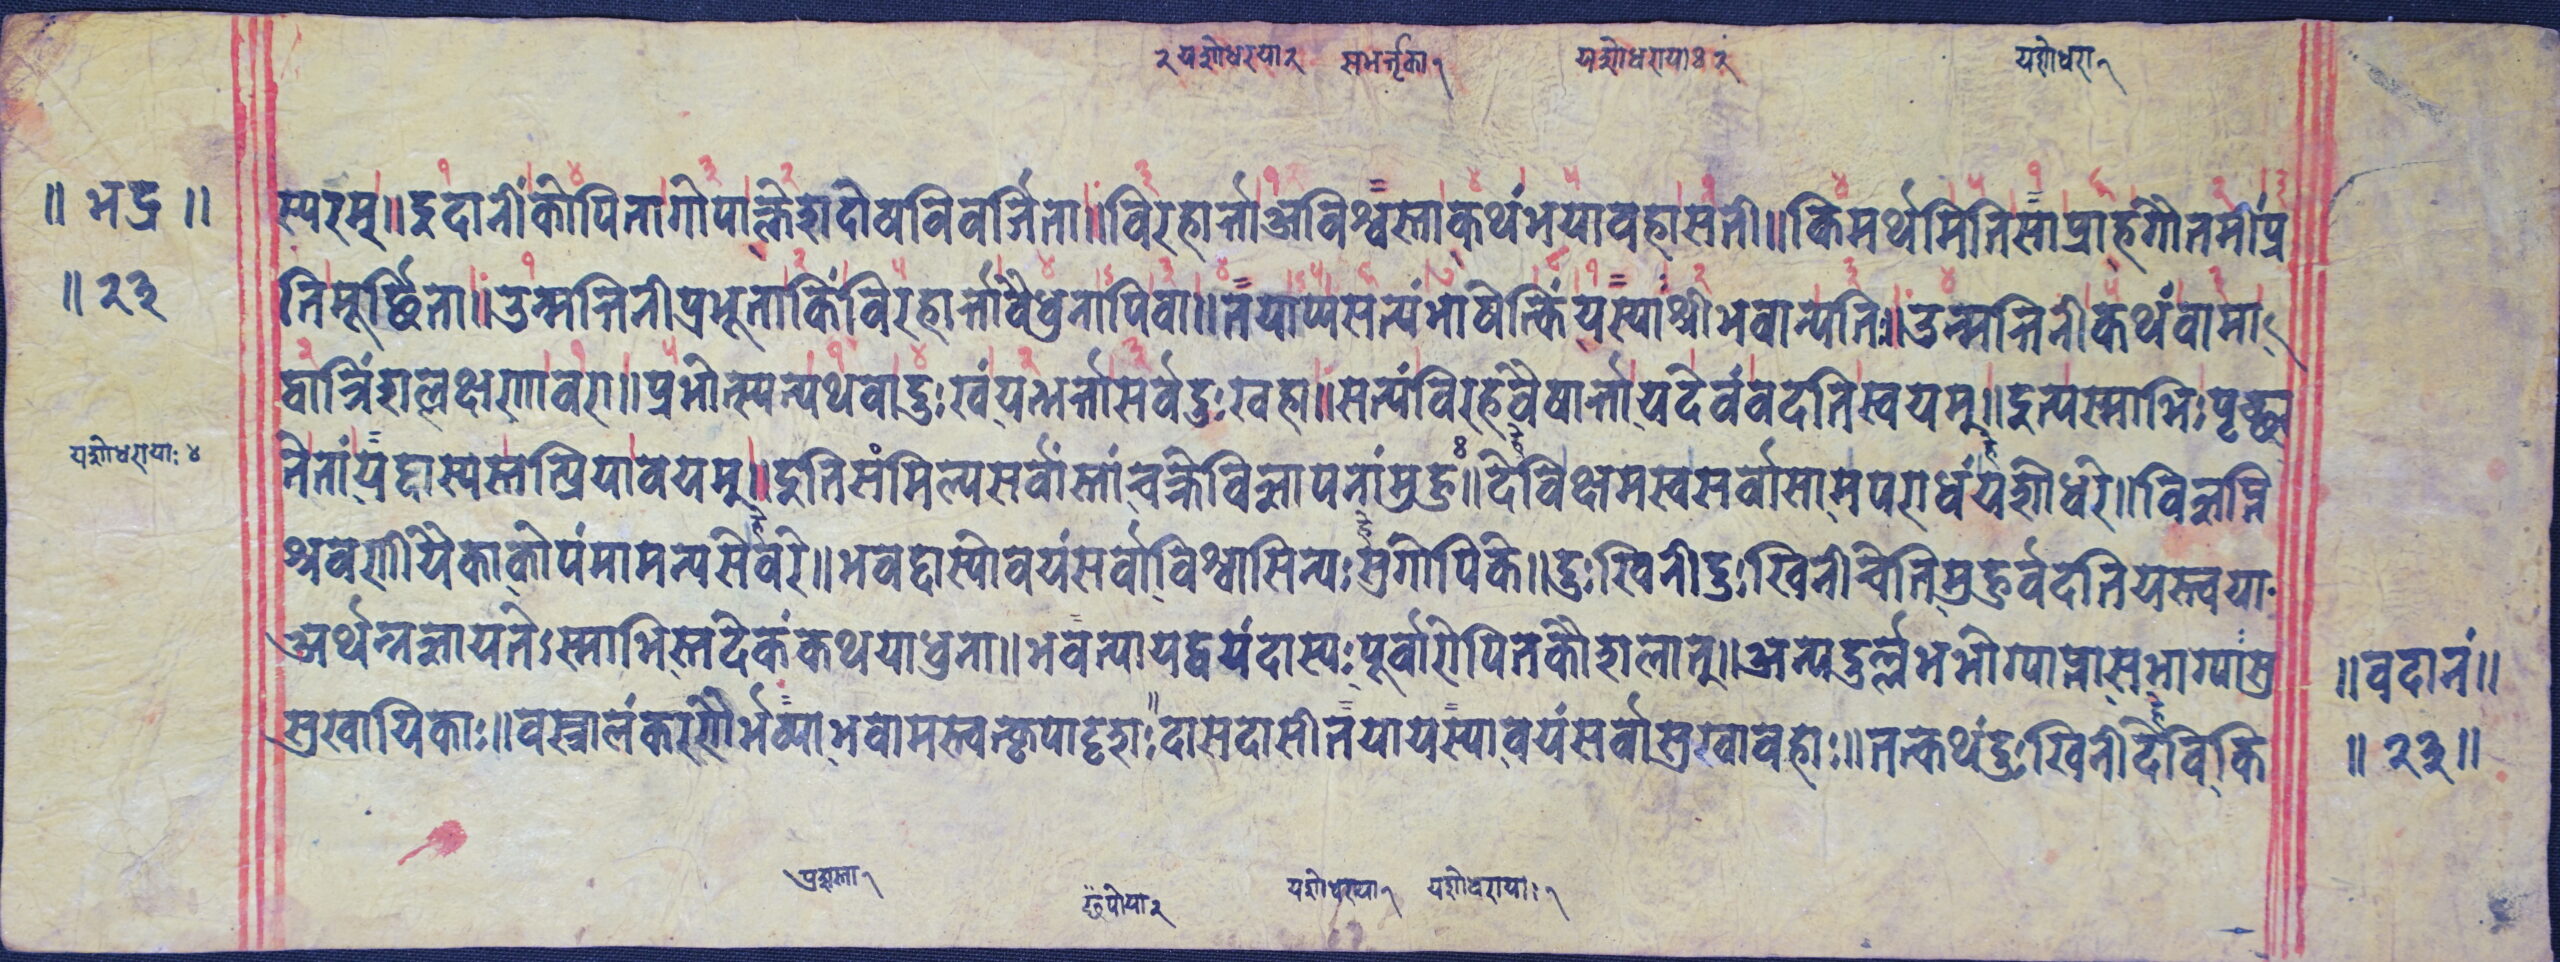 २ यशोधरया २ सभर्त्तृका १ यशोधरायाः २ यशोधरा १
॥ भद्र ॥
स्परम्॥ इदानीं कोपि नागोपाक्लेशदोषविवर्जिता॥ विरहार्त्ता अविश्वस्ता कथं भयावहा सती॥ किमर्थमिति सा प्राह गौतमीं प्र
॥ २३
तिमूर्छिता॥ उन्मत्तिनी प्रभूता किं विरहार्त्ता वैधुनापि वा॥ न याप्यसत्यं भाषेत्किं यस्याः श्रीभवान्पतिः॥ उन्मत्तिनी कथं वामा
द्वात्रिंशल्लक्षणावरा॥ प्रभोत्स्पत्यथवा दुःखं यत्भर्त्ता सर्वदुःखहा॥ सत्यं विरहवैषार्त्ता यदेवं वदति स्वयम्॥ इत्यस्माभिः पृच्छ
यशोधरायाः ४
नैतां यद्दास्यस्तत्प्रिया वयम्॥ इति संमिल्य सर्वास्तां चक्रे विज्ञापनां मुहुः॥ देवि क्षमस्व सर्वासामपराधं यशोधरे॥ विज्ञप्ति
श्रवणीयैका कोपं मा मन्यसे वरे॥ भवद्दास्यो वयं सर्वा विश्वासिन्यः सुगोपिके॥ दुःखिनी दुःखिनी चेति मुहुर्वदति यस्त्वया
अर्थन्न ज्ञायतेऽस्माभिस्तदेकं कथयाधुना॥ भवत्या यद्वयं दास्यः पूर्वारोपितकौशलात्॥ अन्यदुर्लभभोग्याप्ता सभाग्याः सु
॥ वदानं ॥
सुखायिकाः॥ वस्त्रालंकारणैर्भव्या भवाम स्त्वत्कृपादृशः दासदासीनया यस्या वयं सर्वा सुखावहाः॥ तत्कथं दुःखिनी देवि कि
॥ २३ ॥
यशोधरया १ यशोधरायाः १